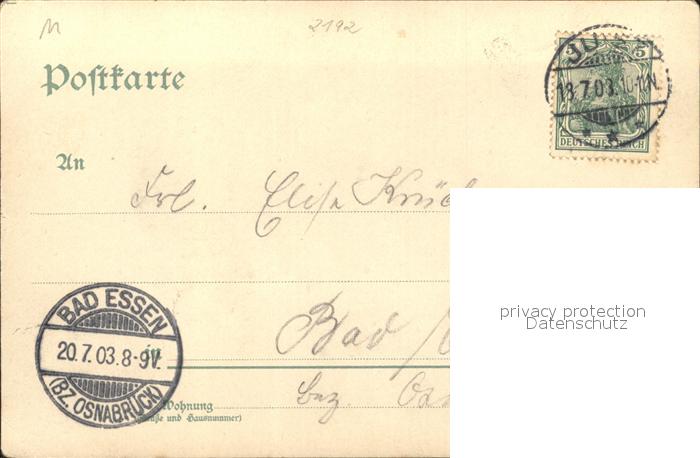 M 2192
Postkarte
5
18.7.03. 10-11N.
DEUTSCHES REICH
An
Frl. Elise
privacy protection
Datenschutz
BAD ESSEN
20.7.03.8-9V.
(BZ. OSNABRÜCK)
Bad
bez.
Wohnung
und Hausnummer)